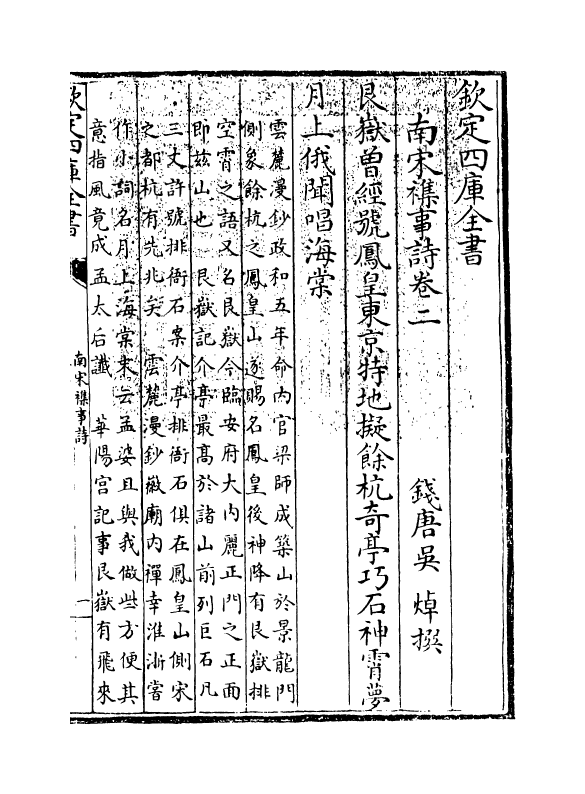 欽定四庫全書
南宋襍事詩卷二
錢唐吳焯撰
艮嶽曽經號鳳皇東京特地擬餘杭奇亭巧石神霄夢
月上俄聞唱海棠
雲麓漫鈔政和五年命内官梁師成築山於景龍門
側象餘杭之鳳皇山遂賜名鳳皇後神降有艮嶽排
空霄之語又名艮嶽今臨安府大内麗正門之正面
即兹山也 艮嶽記介亭最髙於諸山前列巨石凡
三丈許號排衙石案介亭排衙石俱在鳳皇山側宋
之都杭有先兆矣 雲麓漫鈔徽廟内禪幸淮浙嘗
作小詞名月上海棠末云孟婆且與我做些方便其
意指風竟成孟太后讖 華陽宫記事艮嶽有飛來
欽定四庫全書
南宋襍事詩
一